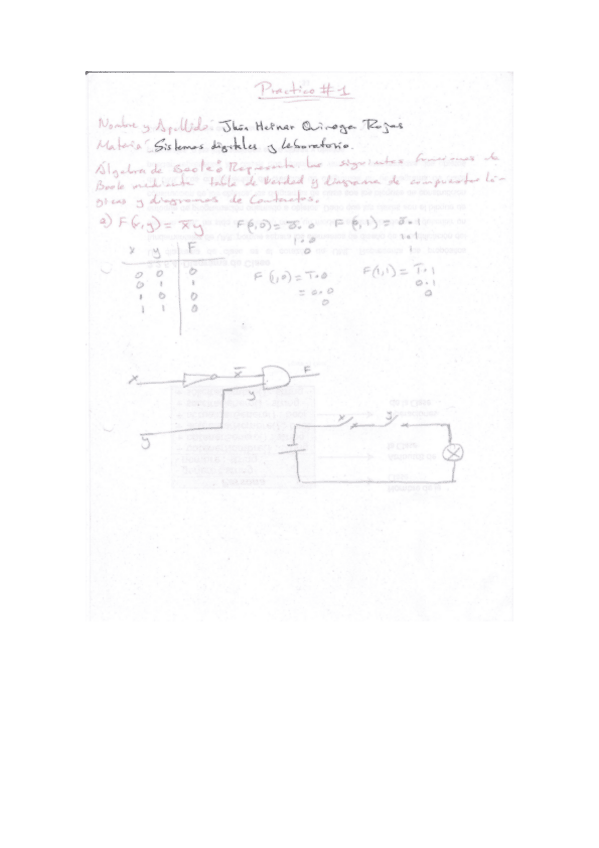 Practico #1
Nombre y Apellido: Jhón Heinar Quiroga Rojas
Materia: Sistemas digitales y laboratorio.
Algebra de Boole: Represente las siguientes funciones de
Boole mediante tabla de verdad y diagrama de compuertas ló-
gicas y diagramas de contactos.
a) F(x,y) = x̅y F(0,0) = 0̅.0 F(0,1) = 0̅.1
1.0 1.1
0 1
x y F
0 0 0
0 1 1
1 0 0
1 1 0
F(1,0) = 1̅.0 F(1,1) = 1̅.1
= 0.0 0.1
0 0
x x̅ F
y
y
x y